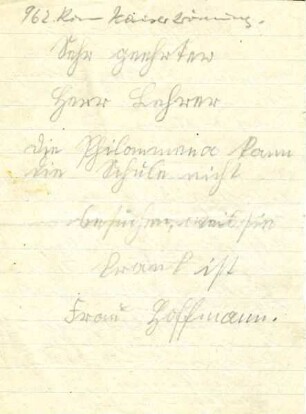 962 Rom Kaiserkrönung.
Sehr geehrter
Herr Lehrer
die Philommena kann
die Schule nicht
besuchen, weil sie
krank ist
Frau Hoffmann.